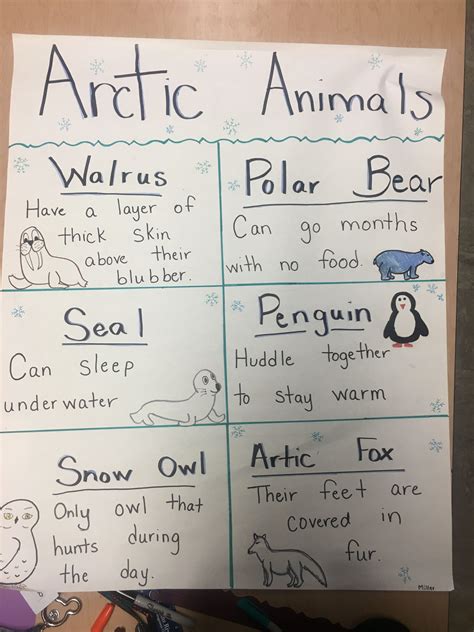 Arctic Animals
Walrus
Have a layer of
thick skin
above their
blubber.
Polar Bear
Can go months
with no food.
Seal
Can sleep
underwater
Penguin
Huddle together
to stay warm
Snow Owl
Only owl that
hunts during
the day.
Artic Fox
Their feet are
covered in
fur.
Miller